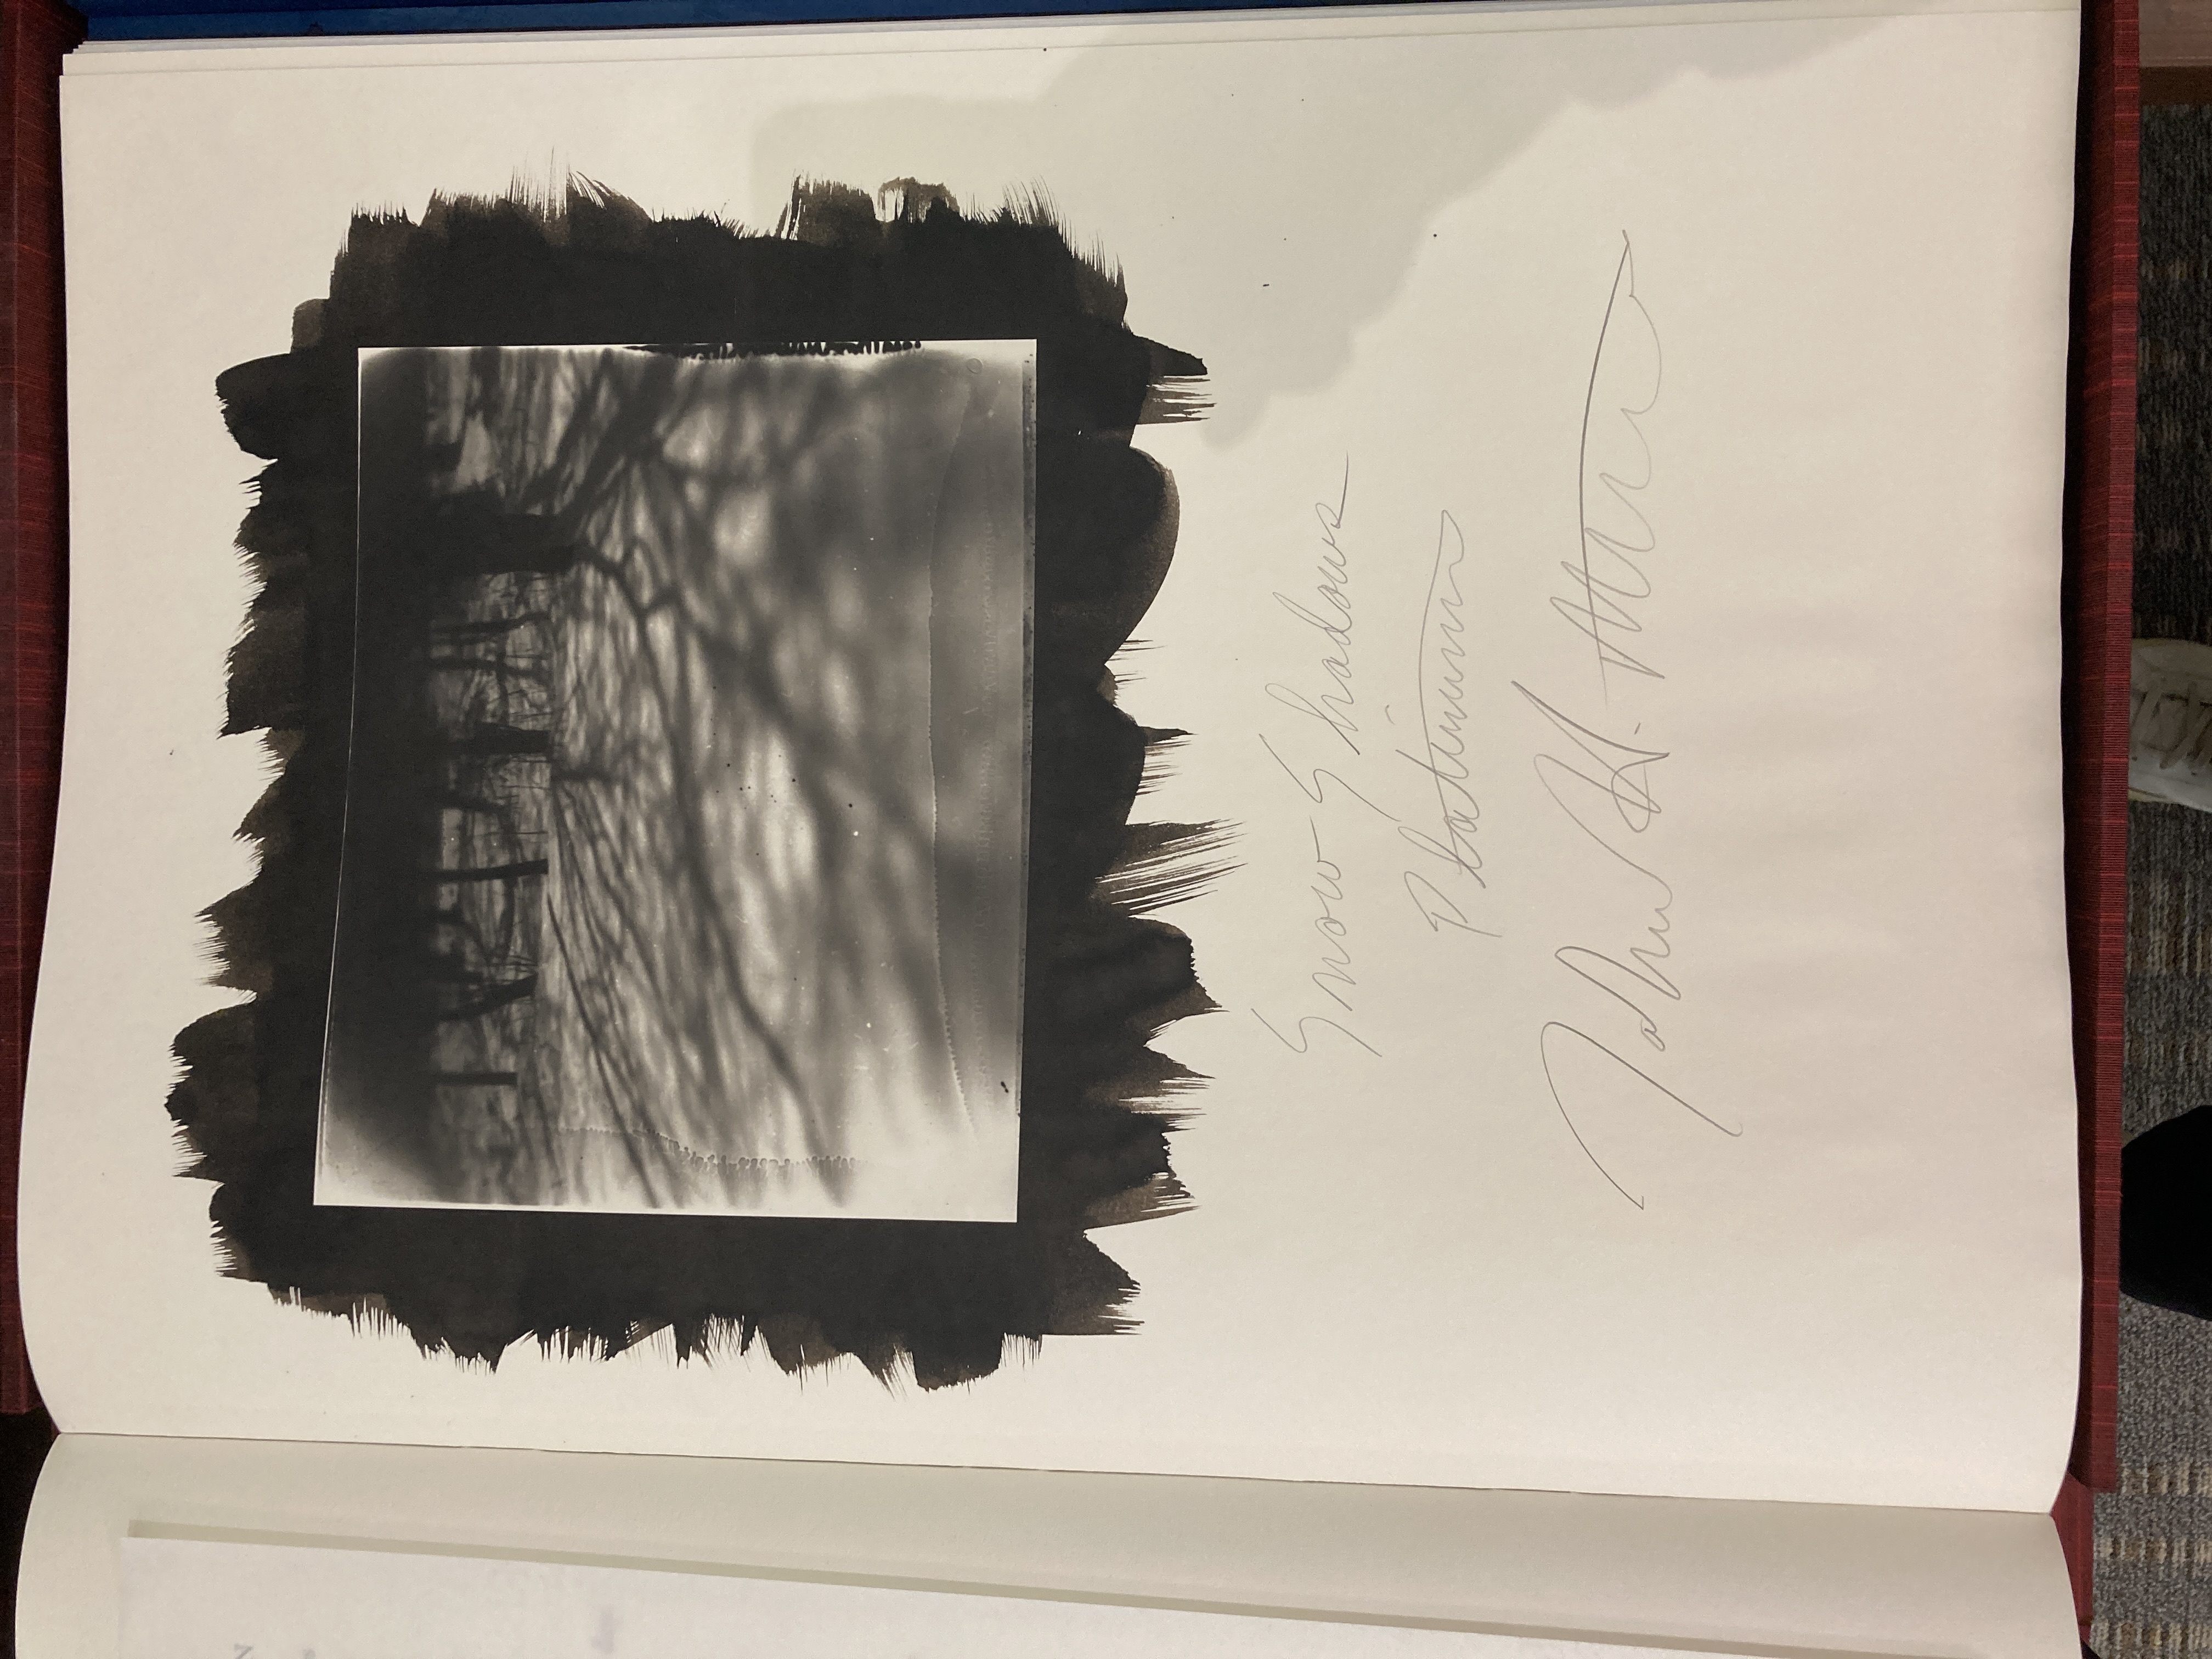 Snow Shadows
Platinum
John H.